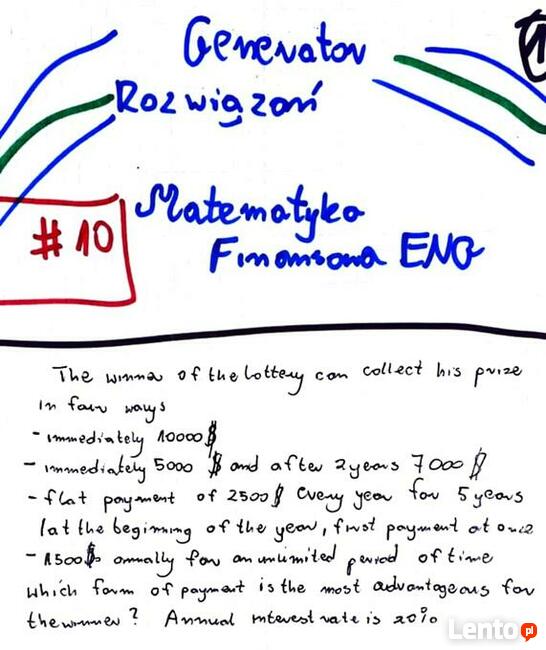 Generator
Rozwiązań
#10
Matematyka
Finansowa ENG
The winner of the lottery can collect his prize
in four ways
- immediately 10000$
- immediately 5000 $ and after 2 years 7000 $
- flat payment of 2500$ every year for 5 years
(at the beginning of the year, first payment at once
- 1500$ annally for an unlimited period of time
which form of payment is the most advantageous for
the winner? Annual interest rate is 20%
Lento pl